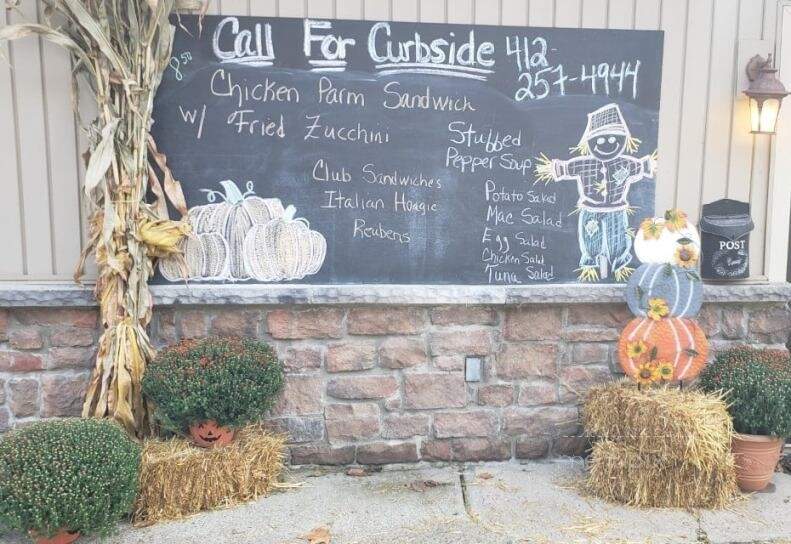 Call For Curbside 412-
257-4944
8.50
Chicken Parm Sandwick
w/ Fried Zucchini
Club Sandwiches
Italian Hoagie
Reubens
Stubbed
Pepper Soup
Potato Salad
Mac Salad
Egg Salad
Chicken Salad
Tuna Salad
POST